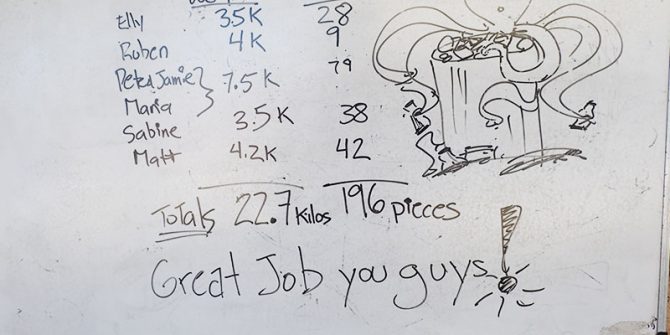 Elly 3.5K 28
Ruben 4K 9
Peter, Jamie 7.5K 79
Maria
Sabine 3.5K 38
Matt 4.2K 42
Totals 22.7 Kilos 196 pieces
Great Job you guys!